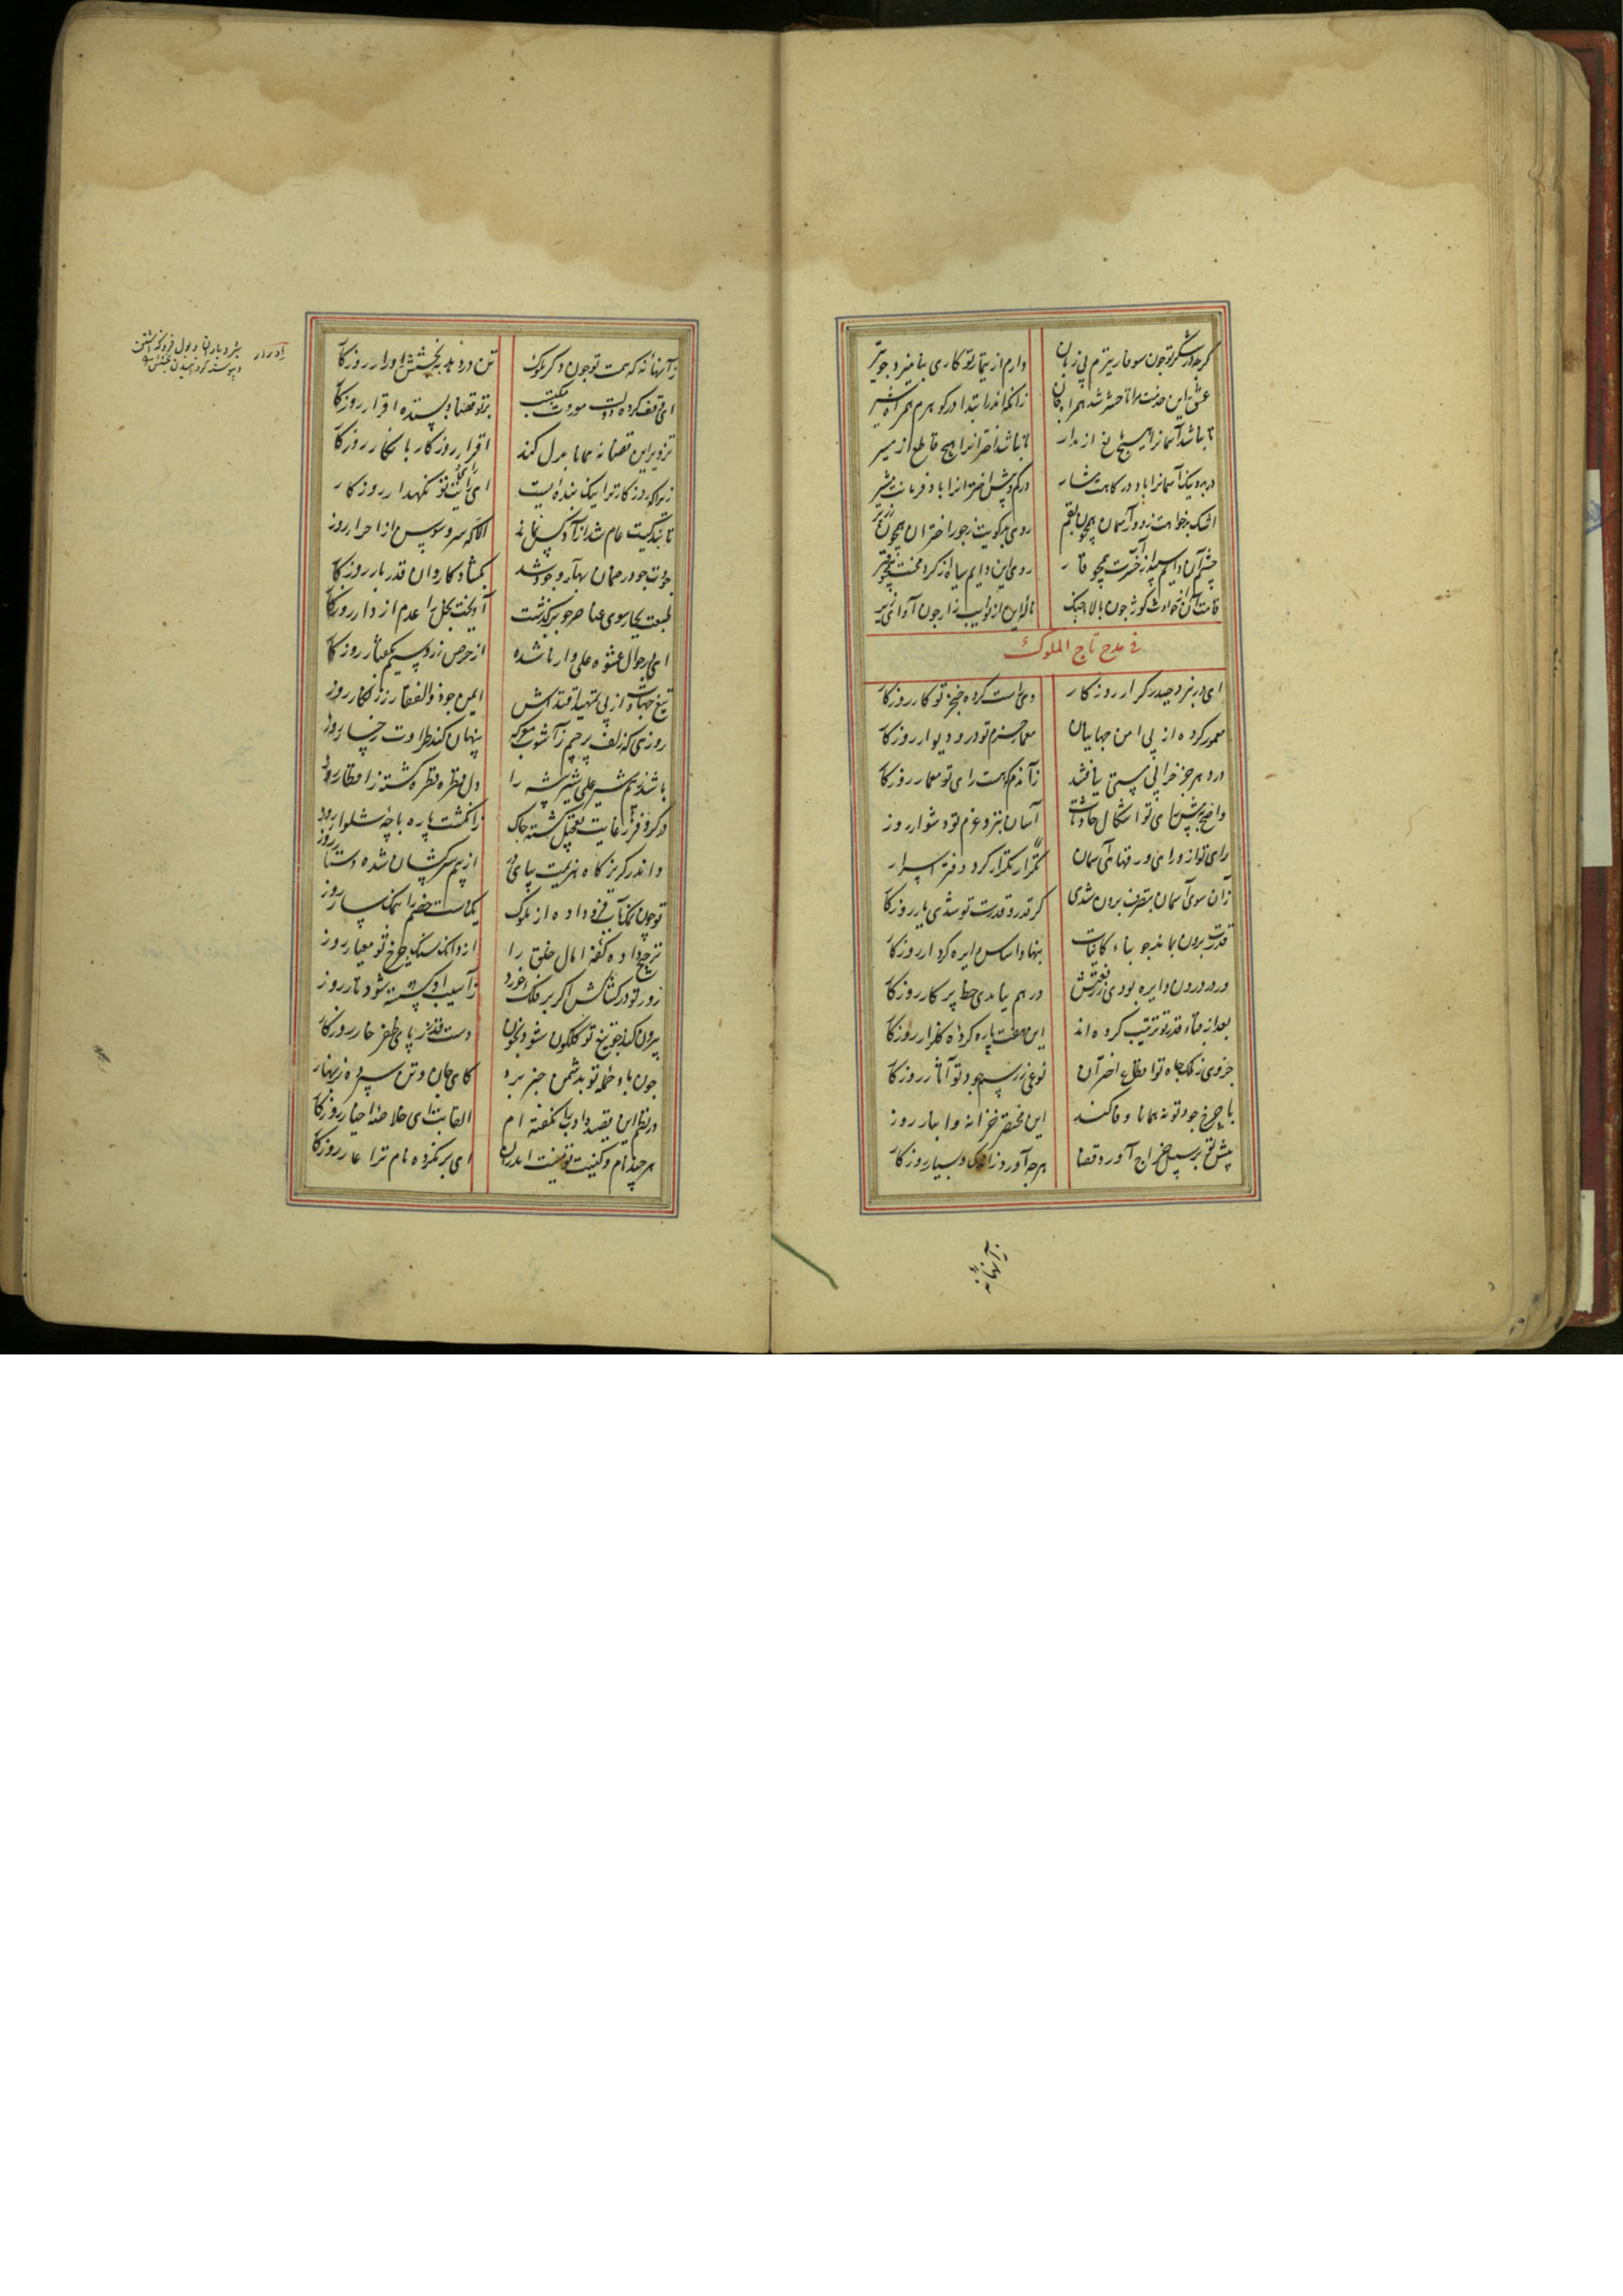 گرچه در شکر تو چون سوفار بی‌تیرم زبان دارم از تیمار تو کاری بنامیزد چو تیر
عشق این خدمت مرا تا حشر شد همراه جان زانکه اندر ابتدا در گوهرم همراه شیر
تا نباشد آسمان را هیچ مانع از مدار تا نباشد اختران را هیچ قاطع از مسیر
اشک بدخواهت ز دور آسمان همچون بقم روی بدگویت ز جور اختران همچون زریر
چشم آن دایم سپید از آب حسرت همچو قار روی این دایم سیاه از گرد محنت همچو قیر
قامت آن از حوادث کوژ چون بالای چنگ ناله این از نوایب زار چون آوای زیر
فی مدح تاج الملوک
ای در نبرد حیدر کرار روزگار وی راست کرده خنجر تو کار روزگار
معمور کرده از پی امن جهانیان معمار حزم تو در و دیوار روزگار
در دهر جز خرابی مستی نیافتند زان دم که هست رای تو معمار روزگار
واضح به پیش رای تو اشکال حادثات آسان به نزد عزم تو دشوار روز
رای تو از ورای ورقهای آسمان تکرار کرده دفتر اسرار
زان سوی آسمان بتصرف برون شدی گر قدر و قدرت تو شدی یار روزگار
قدرت برون بماند چو بناء کاینات بنهاد اساس دایره کردار روزگار
ور در درون دایره بودی ز رفعتش در هم نیامدی خط پرگار روزگار
بعد از فناء قدر تو ترتیب کرده اند این هفت پاره کرده گلزار روزگار
جزوی ز ملک جاه تو اقطاع اختران نوعی ز رسم جود تو آثار روزگار
با چرخ جود تو نه همانا وفا کند این مختصر خزانه و انبار روز
پیش تو بر سبیل خراج آورد قضا هرچ آورد ز اندک و بسیار روزگار
زانها نه که همت تو چون دگر ملوک تن در دهد ببخشش و ادرار روزگار
ای وقف کرده دولت موروث و مکتسب بر تو قضا و بستده اقرار روزگار
تزویر این قضا نه همانا بدل کند اقرار روزگار بانکار روزگار
زیرا که روزگار ترا نیک بنده ایست ای رایت تو نگهدار روزگار
تا بندگیت عام شد آزاد کس نماند الا که سرو و سوسن از احرار روز
جودت چو در ضمان بهار وجود شد بگشاد کاروان قدر بار روزگار
طبعت بچارسوی عناصر چو برگذشت آویخت بخل را عدم از دار روزگار
ای در جوال عشوه علی وار ناشده از حرص زر و سیم به گفتار روزگار
تیغ جهادت از پی تمهید اقتداش ایمن چو ذوالفقار ز زنگار روز
روزی که زلف پرچم از آشوب معرکه پنهان کند طراوت رخسار روز
باشد ز بیم شیر علم شیر بیشه را دل قطره قطره گشته در اقطار روز
در گرّ و فرّ ز غایت تعجیل گشته چاک ز انگشت پای پاچه شلوار روز
واندر گریزگاه هزیمت بپای در از بیم سرکشان شده دستار روز
تو چون نهنگ
یک دست خصم را بکف یسار روز
ترجیح داده کفه آمال خلق را از دانگ سنگ چرخ تو معیار روز
زور تو در کشاکش اگر بر فلک خورد زآسیب او گسسته شود تار روز
بیرون کند چو تیغ تو گلگون شود بخون دست قدر ز پای ظفر خار روزگار
چون باد حمله تو بدشمن خبر برد کای جان و تن سپرده بزنهار
در نظم این قصیده ادب را نگفته ام القابت ای خلاصه اخیار روزگار
هر چند نام و کنیت تو نیست اندر آن ای بر نکرده نام ترا عار روزگار
ادرار